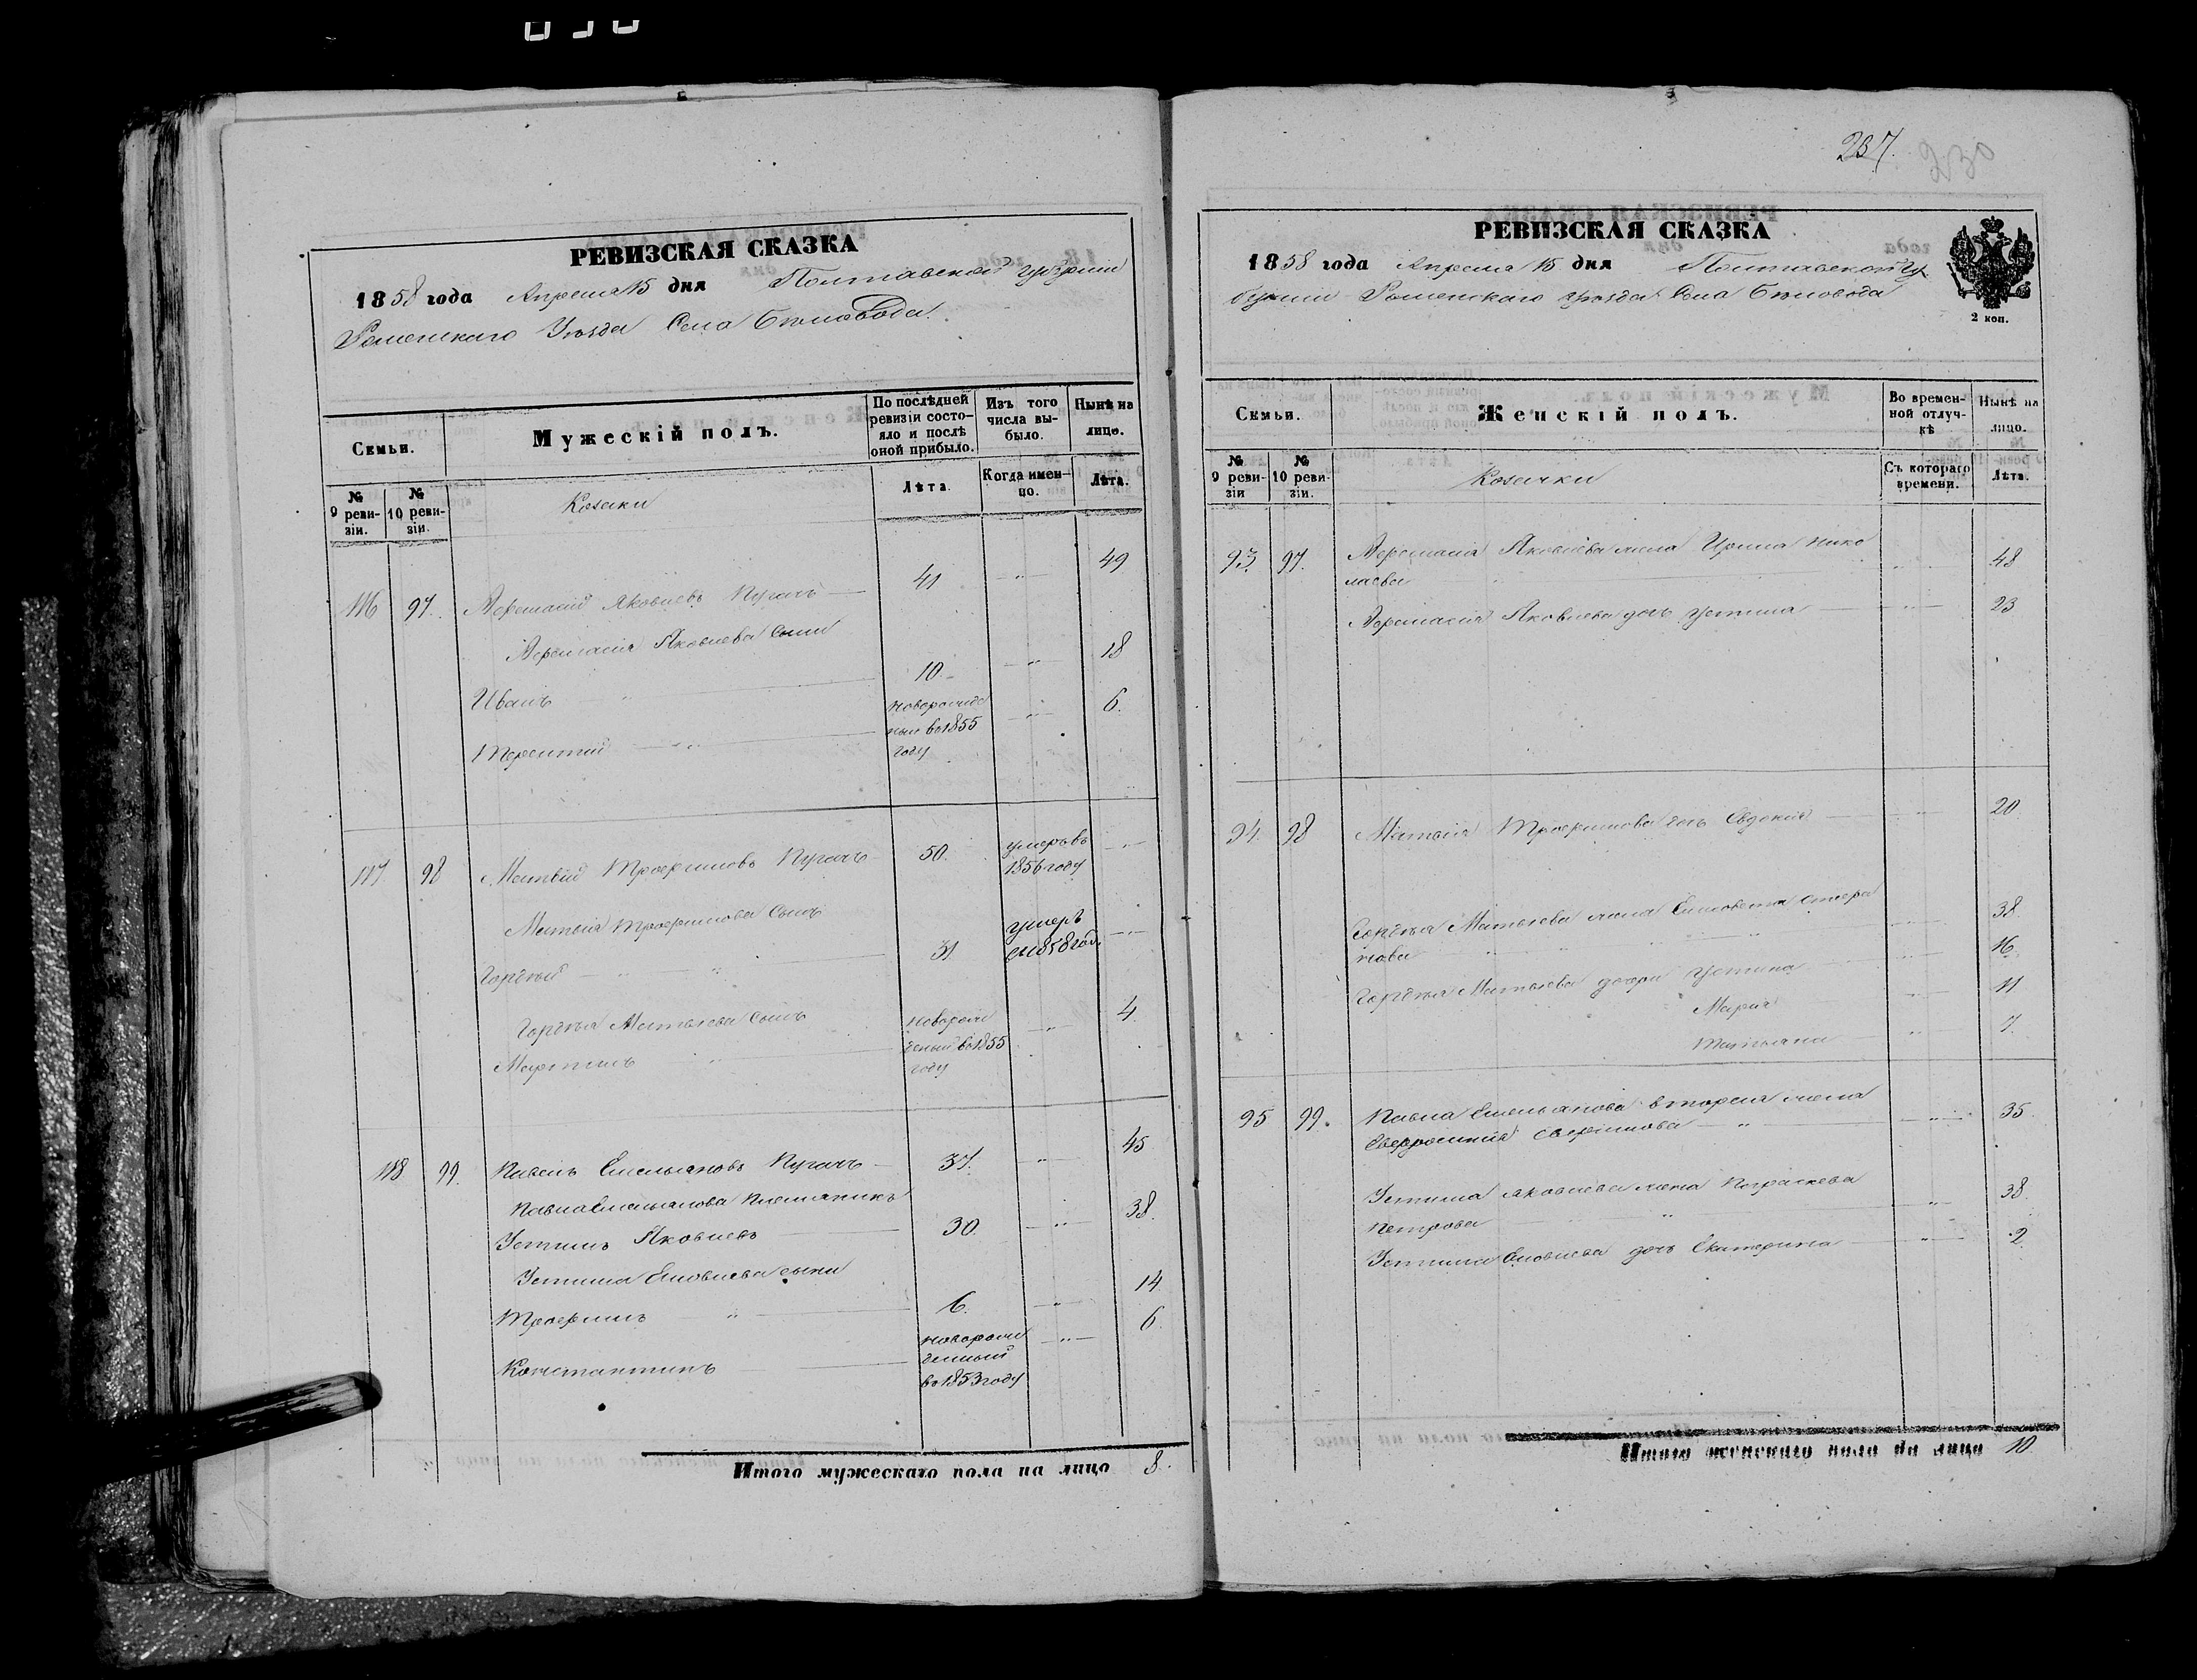 РЕВИЗСКАЯ СКАЗКА
1858 года Апреля 15 дня Полтавской губерніи
Роменскаго Уѣзда Села Бѣловода
Семьи.
Мужескій полъ.
По послѣдней ревизіи состояло и послѣ оной прибыло.
Изъ того числа выбыло.
Нынѣ на лицо.
№ 9 ревизіи.
№ 10 ревизіи.
Козаки
Лѣта.
Когда именно.
Лѣта.
116 97. Яковлевъ Пугачъ 41 49
Яковлева сыни
Иванъ 10. 18
Терентий новорожде
ный во 1855
году 6.
117 98 Матвій Трофимовъ Пугачъ 50. умеръ въ
1856 году
Матвія Трофимова сынъ
Гордѣй 31 умеръ
1858 год
Гордѣя Матвѣева сынъ
Мартинъ новорож
деный во 1855
году 4.
118 99. Павелъ Емельяновъ Пугачъ 37. 45
Павла Емельянова племяникъ
Устинъ Яковлевъ 30. 38.
Устина Яковлева сыни
Трофимъ 6. 14
Константинъ новорож
денный
во 1853 году 6
Итого мужескаго пола на лицо 8.
237.
230
РЕВИЗСКАЯ СКАЗКА
1858 года Апреля 15 дня Полтавской гу
берніи Роменскаго уѣзда Села Бѣловода
2 коп.
Семьи.
Женскій полъ.
Во временной отлучкѣ
Нынѣ на лицо.
№ 9 ревизіи
№ 10 ревизіи.
Козачки
Съ котораго времени.
Лѣта.
93. 97. Яковлева жена Ирина Нико
лаева 48
Яковлева дочь Устина 23
94. 98 Матвія Трофимова дочь Евдокія 20
Гордѣя Матвѣева жена Елисавета
38.
Гордѣя Матвѣева дочери Устина 16.
Марія 11
Татіяна 7.
95 99. Павла Емельянова вторая жена
Евфросинія 35.
Устина Яковлева жена Параскева
Петрова 38.
Устина Яковлева дочь Екатерина 2
Итого женскаго пола на лицо 10.